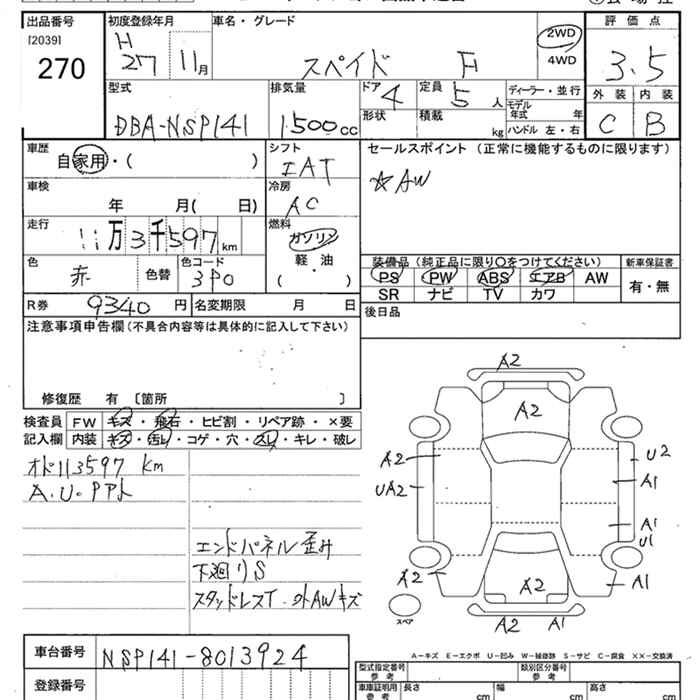 出品番号 初度登録年月 車名・グレード 評価点
[2039]
270 H 27 11月 スペイド F 2WD 4WD 3.5
型式 排気量 ドア 定員 ディーラー・並行 外装 内装
DBA-NSP141 1500cc 4 5人 モデル年式 年 C B
形状 積載 kg ハンドル 左・右
車歴 シフト セールスポイント (正常に機能するものに限ります)
自家用・( ) IAT ☆AW
車検 冷房
年 月( 日) AC
走行 燃料
11万3千597km ガソリン
色 色コード 軽・油 装備品 (純正品に限り○をつけてください) 新車保証書
赤 色替 3P0 ( ) PS PW ABS エアB AW 有・無
SR ナビ TV カワ
R券 9340円 名変期限 月 日 後日品
注意事項申告欄 (不具合内容等は具体的に記入して下さい)
修復歴 有 〔箇所 〕
検査員 FW キズ・飛石・ヒビ割・リペア跡・×要
記入欄 内装 キズ・汚レ・コゲ・穴・スレ・キレ・破レ
オド113597 km
A.U.PPAト
エンドパネル歪み
下廻りS
スタッドレスT・外AWキズ
A2
A2
A2 U2
UA2 A1
A1
U1
A2 A2 A1
スペア A2 A1
A-キズ E-エクボ U-凹み W-補修跡 S-サビ C-腐食 XX-交換済
車台番号 NSP141-8013924
登録番号
型式指定番号 参考 類別区分番号 参考
車庫証明用 参考 長さ cm 幅 cm 高さ cm